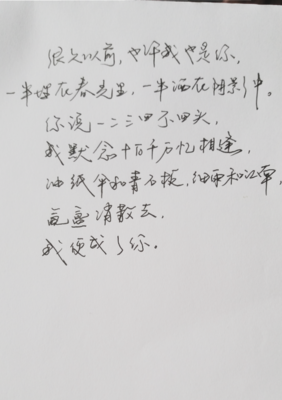 很久以前，也许我也是你，
一半埋在春光里，一半洒在阴影中。
你说一二三四不回头，
我默念十百千万忆相逢，
油纸伞和青石板，细雨和江南，
消散去，
我便成了你。